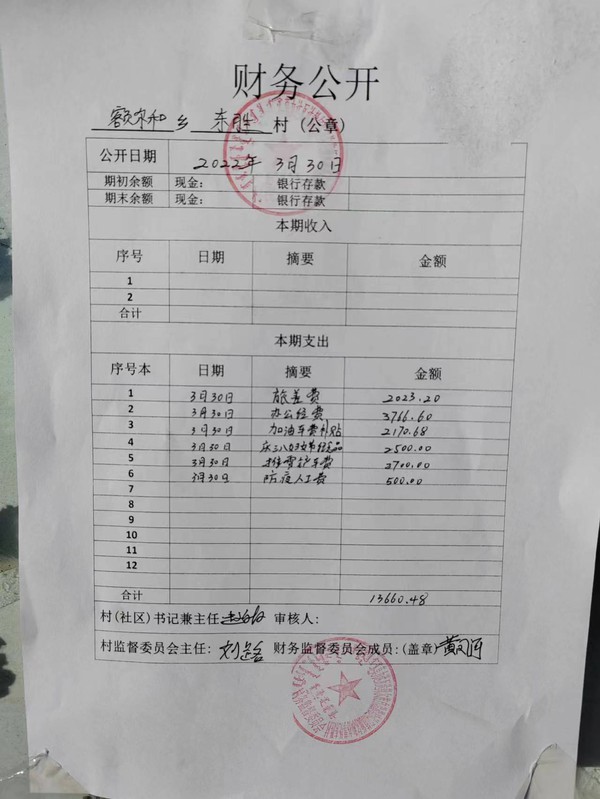 财务公开
额尔和乡 东胜 村（公章）
公开日期 2022年 3月30日
期初余额 现金： 银行存款
期末余额 现金： 银行存款
本期收入
序号 日期 摘要 金额
1
2
合计
本期支出
序号本 日期 摘要 金额
1 3月30日 旅差费 2023.20
2 3月30日 办公经费 3766.60
3 3月30日 加油车费补贴 2170.68
4 3月30日 庆三八妇女节 品 2500.00
5 3月30日 推雪铲车费 2700.00
6 3月30日 防疫人工费 500.00
7
8
9
10
11
12
合计 13660.48
村(社区)书记兼主任 审核人：
村监督委员会主任： 财务监督委员会成员:(盖章)